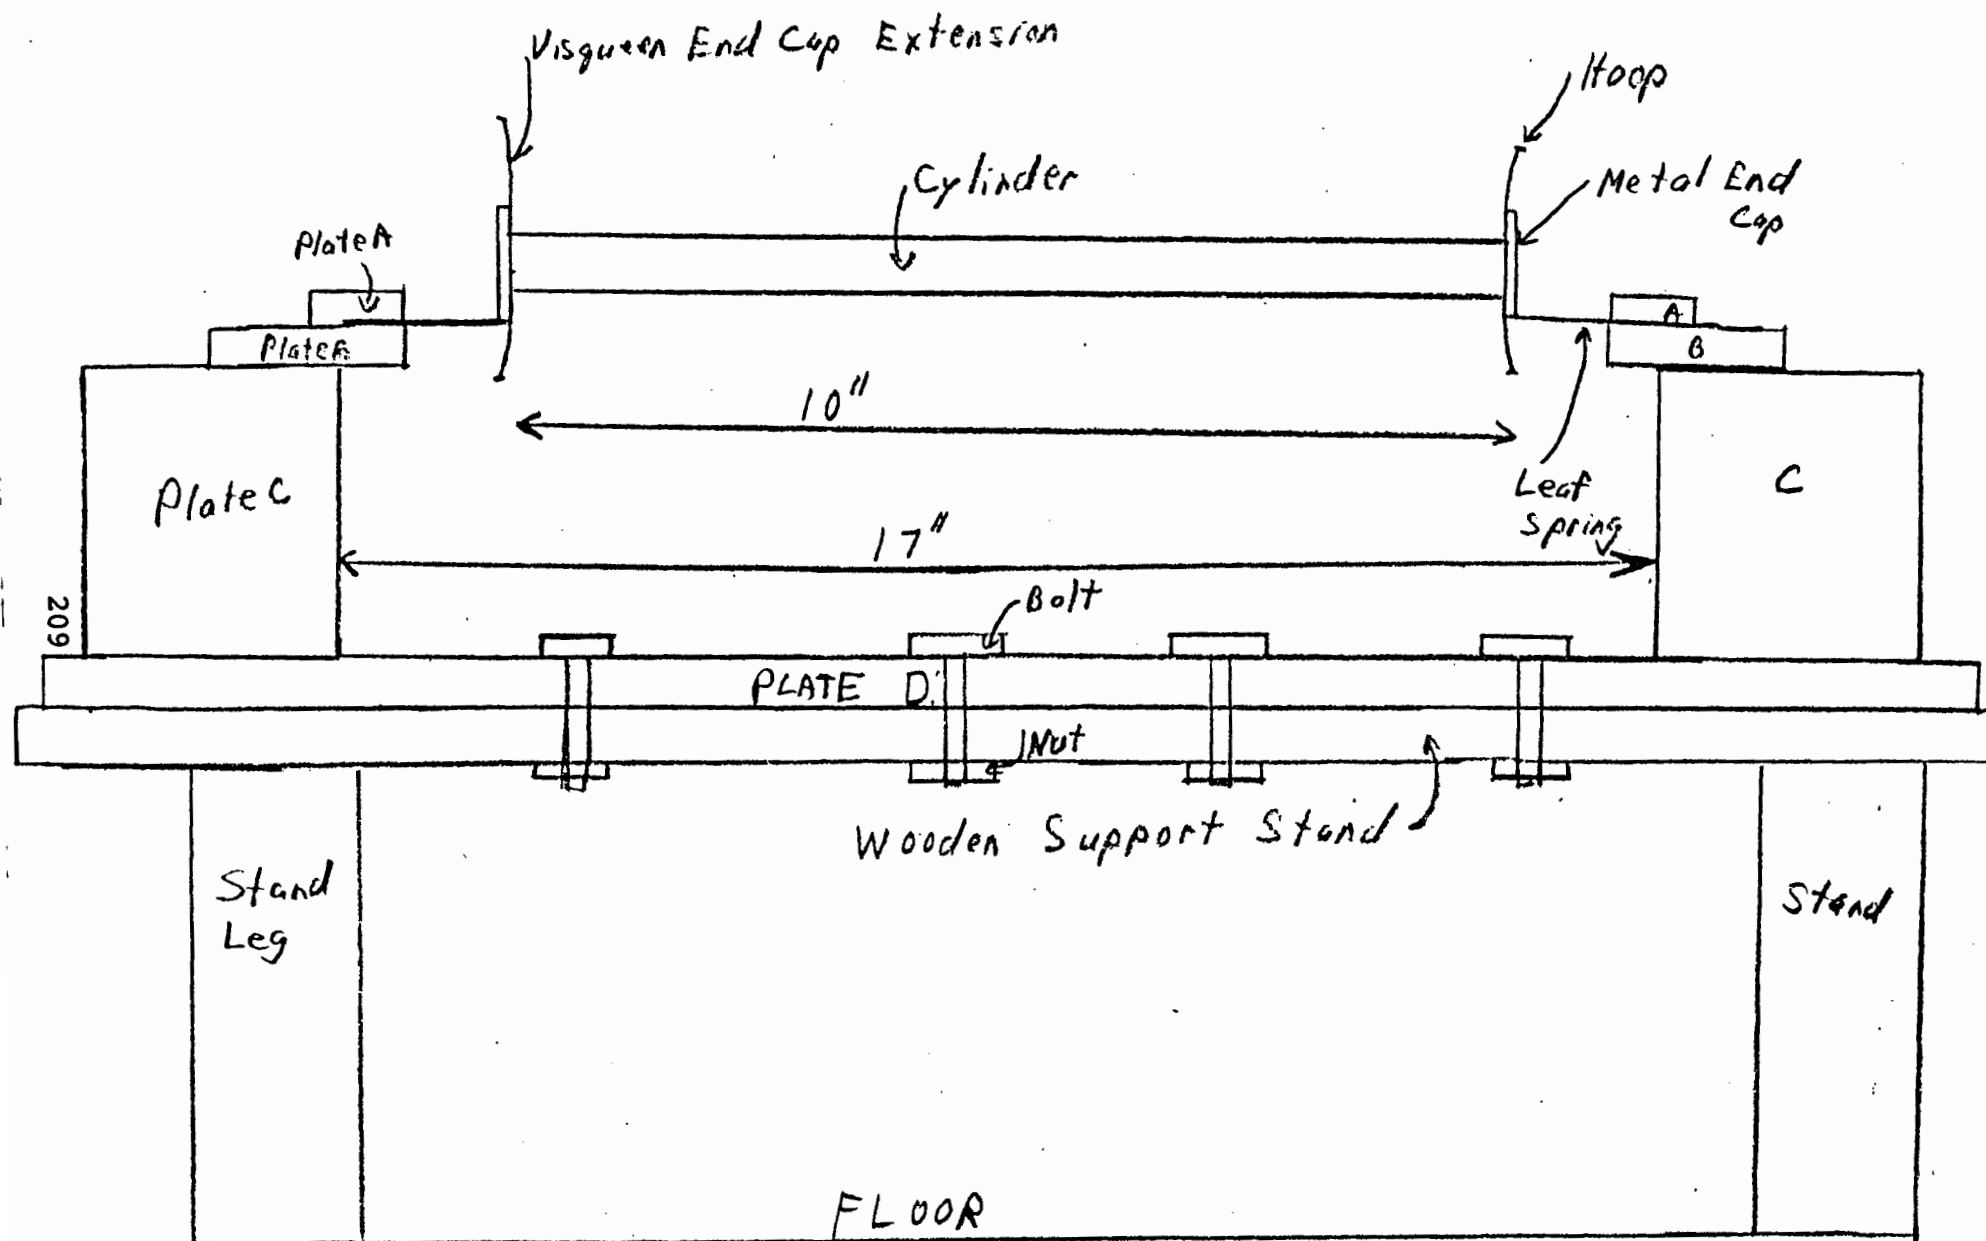 Visqueen End Cap Extension
Hoop
Cylinder
Metal End
Cap
Plate A
A
Plate B
B
10"
Plate C
C
Leaf
Spring
17"
Bolt
209
PLATE D
Nut
Wooden Support Stand
Stand
Leg
Stand
FLOOR